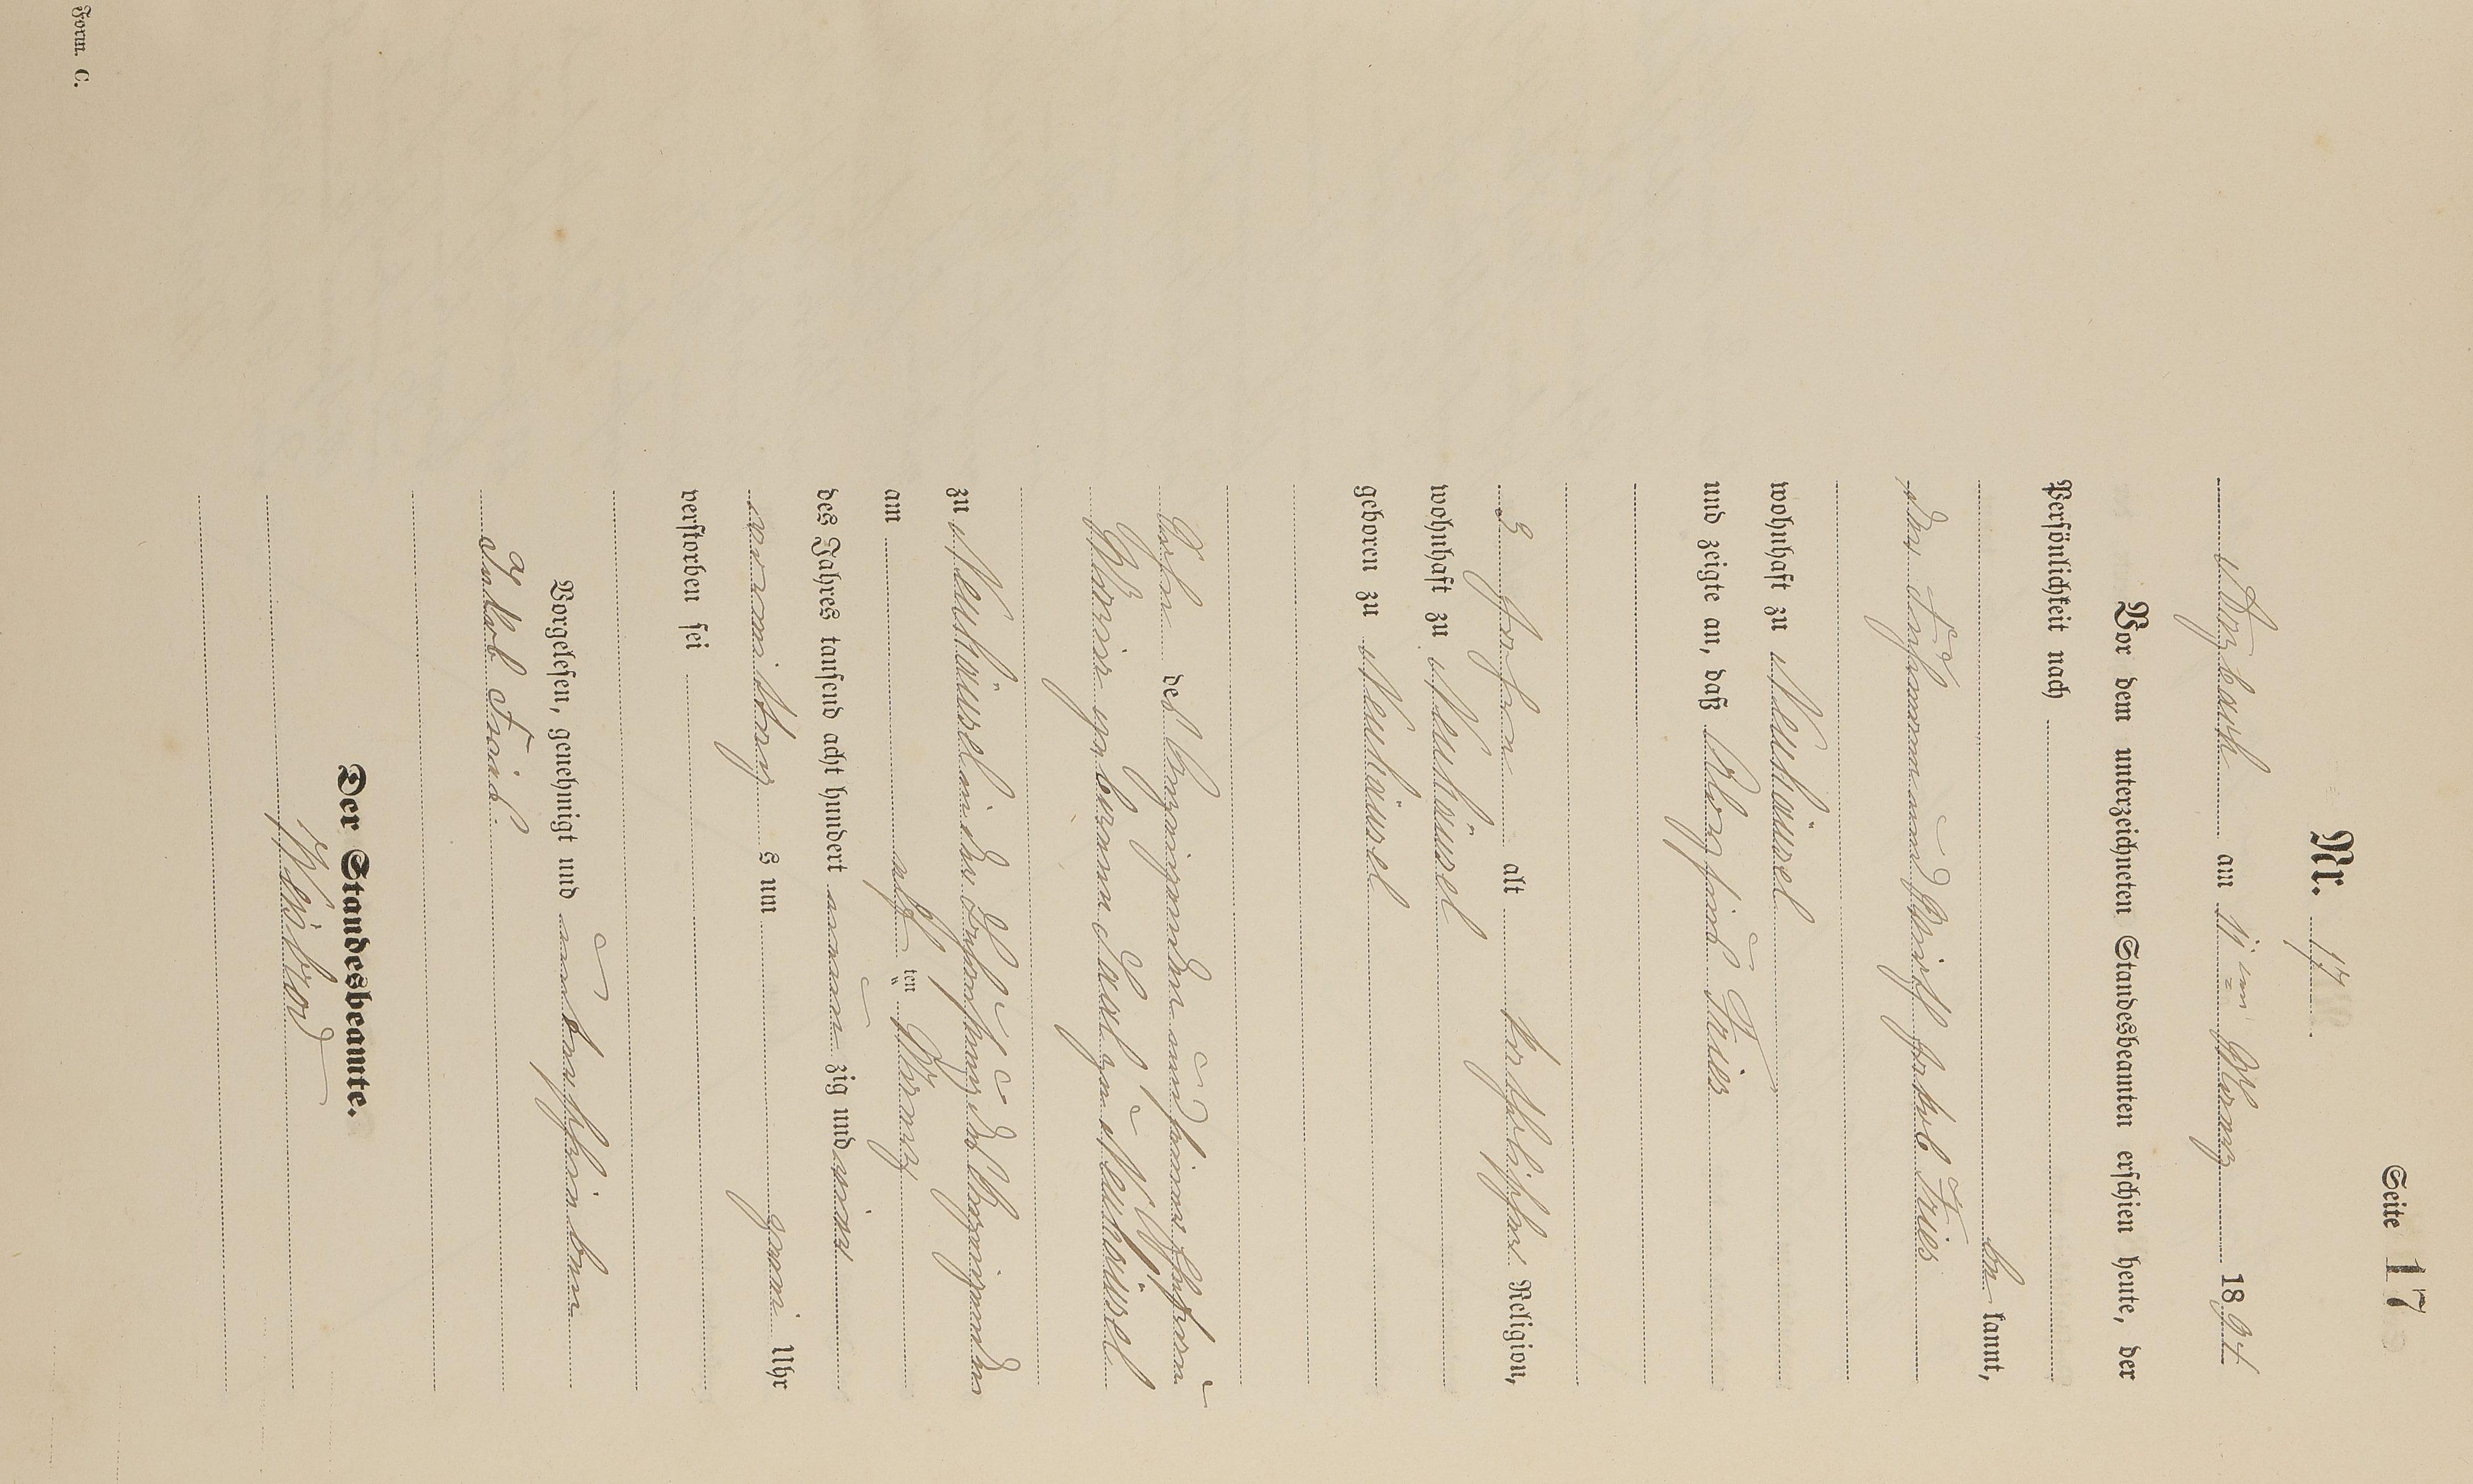 Seite 17
Nr. 17.
Arzbach am 11ten März 1894
Vor dem unterzeichneten Standesbeamten erschien heute, der
Persönlichkeit nach
be kannt,
der Fuhrmann und Wirth Jakob Fries
wohnhaft zu Neuhäusel
und zeigte an, daß Aloysius Fries
3 Jahre alt katholischer Religion,
wohnhaft zu Neuhäusel
geboren zu Neuhäusel
Sohn des Anzeigenden und seiner Ehefrau
Maria geborene zu Neuhäusel
zu Neuhäusel in der Behausung des Anzeigenden
am elf ten März
des Jahres tausend acht hundert neun zig und vier
vormittags um zwei Uhr
verstorben sei
Vorgelesen, genehmigt und unterschrieben
Jakob Fries.
Der Standesbeamte.
Form. C.